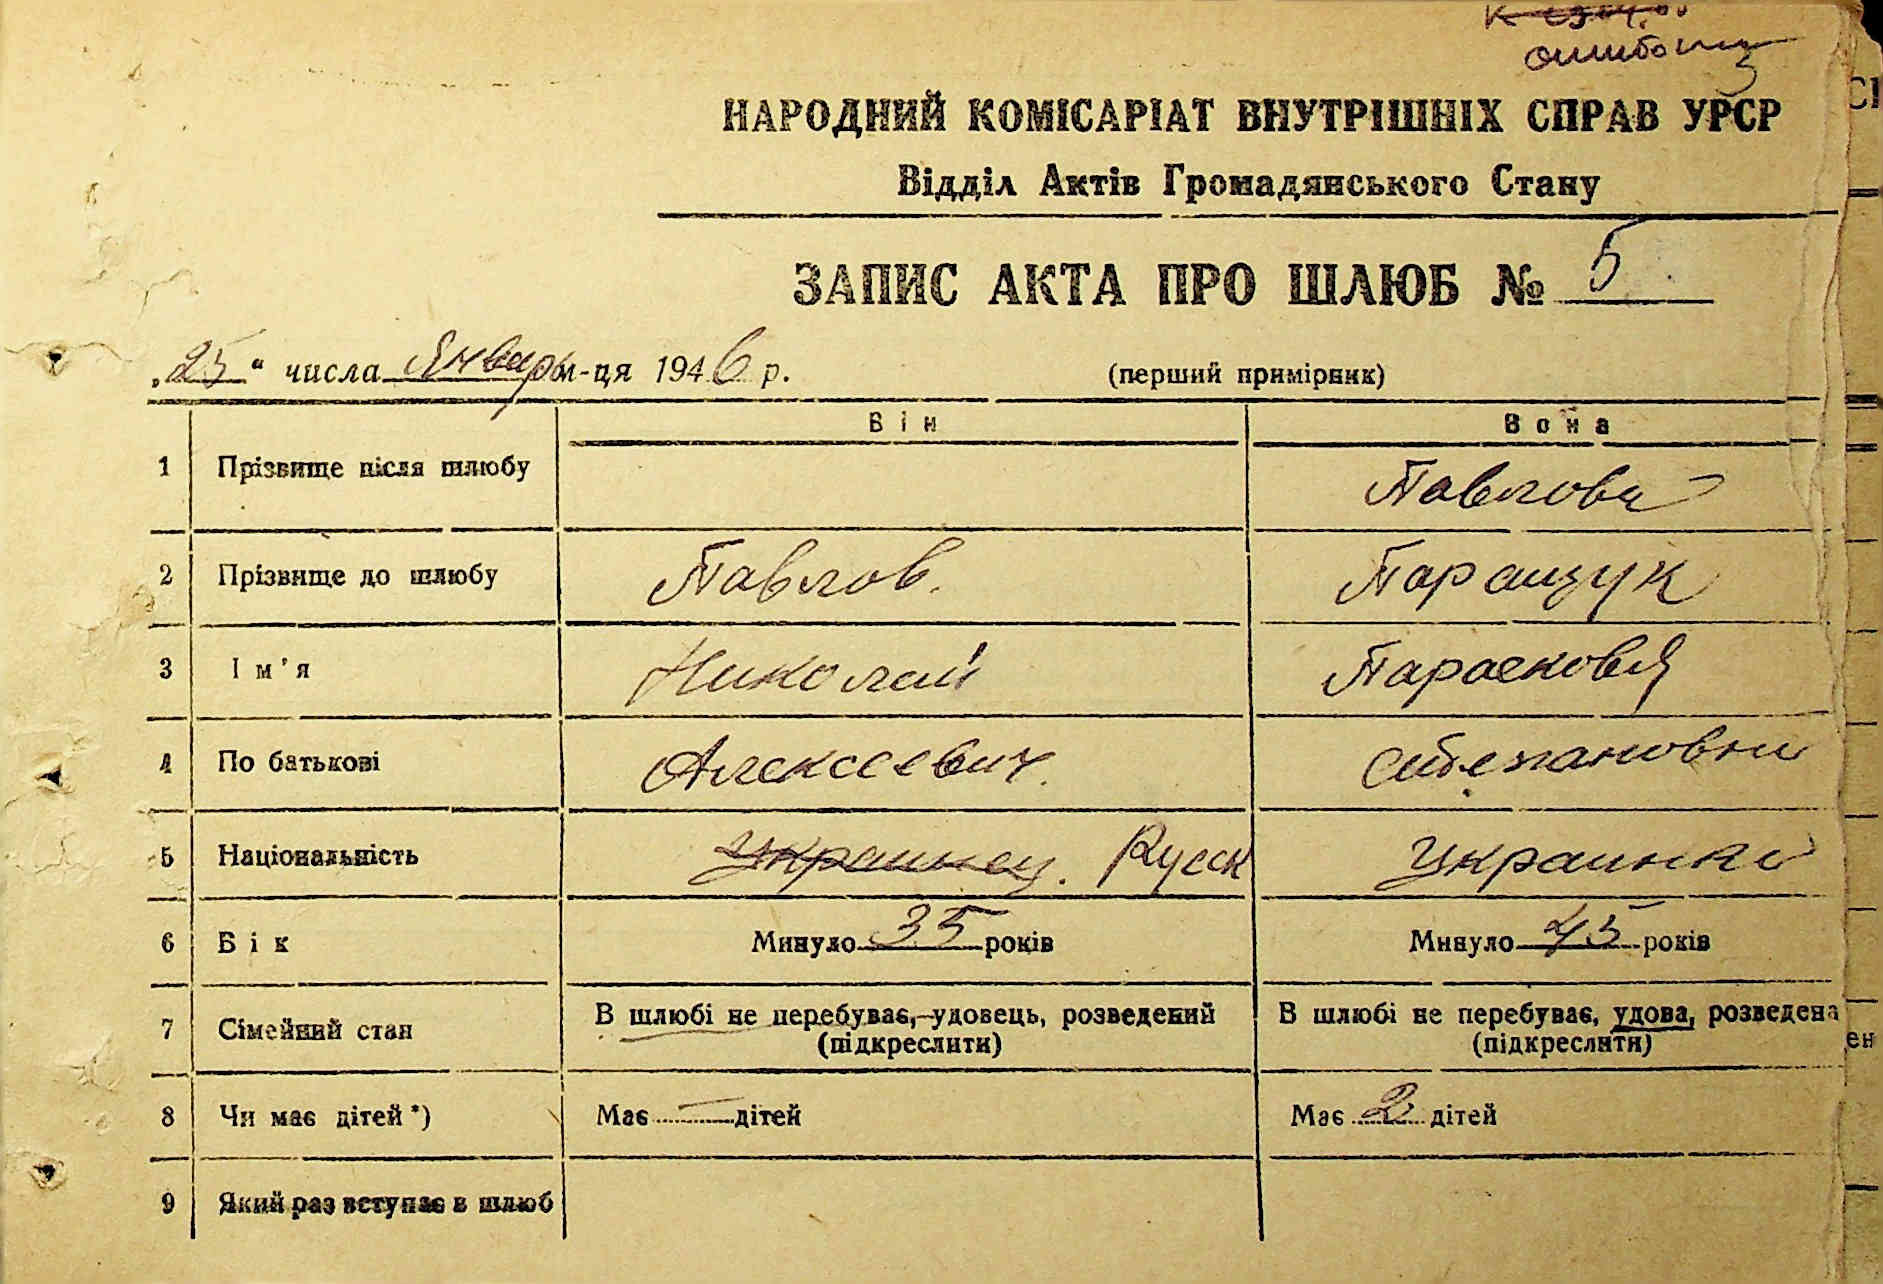 НАРОДНИЙ КОМІСАРІАТ ВНУТРІШНІХ СПРАВ УРСР
Відділ Актів Громадянського Стану
ЗАПИС АКТА ПРО ШЛЮБ № 5
„25“ числа Январь м-ця 1946 р. (перший примірник)
Він Вона
1 Прізвище після шлюбу Павлова
2 Прізвище до шлюбу Павлов. Паращук
3 Ім'я Николай Парасковья
4 По батькові Алексеевич. Степановна
5 Національність Украинец. Русск Украинка
6 Вік Минуло 35 років Минуло 45 років
7 Сімейний стан В шлюбі не перебуває, удовець, розведений В шлюбі не перебуває, удова, розведена
(підкреслити) (підкреслити)
8 Чи має дітей*) Має — дітей Має 2 дітей
9 Який раз вступає в шлюб